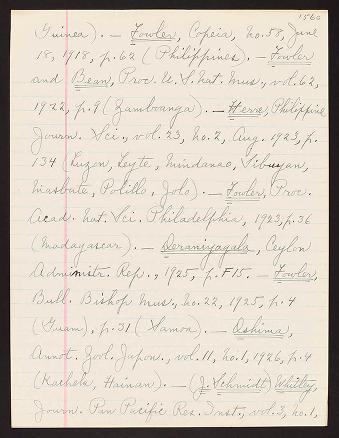 1560
Guinea). — Fowler, Copeia, no. 58, June
18, 1918, p. 62 (Philippines). — Fowler
and Bean, Proc. U. S. Nat. Mus., vol. 62,
1922, p. 9 (Zamboanga). — Herre, Philippine
Journ. Sci., vol. 23, no. 2, Aug. 1923, p.
134 (Luzon, Leyte, Mindanao, Sibuyan,
Masbate, Polillo, Jolo). — Fowler, Proc.
Acad. Nat. Sci. Philadelphia, 1923, p. 36
(Madagascar). — Deraniyagala, Ceylon
Administr. Rep., 1925, p. F15. — Fowler,
Bull. Bishop Mus., no. 22, 1925, p. 4
(Guam), p. 31 (Samoa). — Oshima,
Annot. Zool. Japon., vol. 11, no. 1, 1926, p. 4
(Kachek, Hainan). — (J. Schmidt) Whitley,
Journ. Pan Pacific Res. Inst., vol. 3, no. 1,